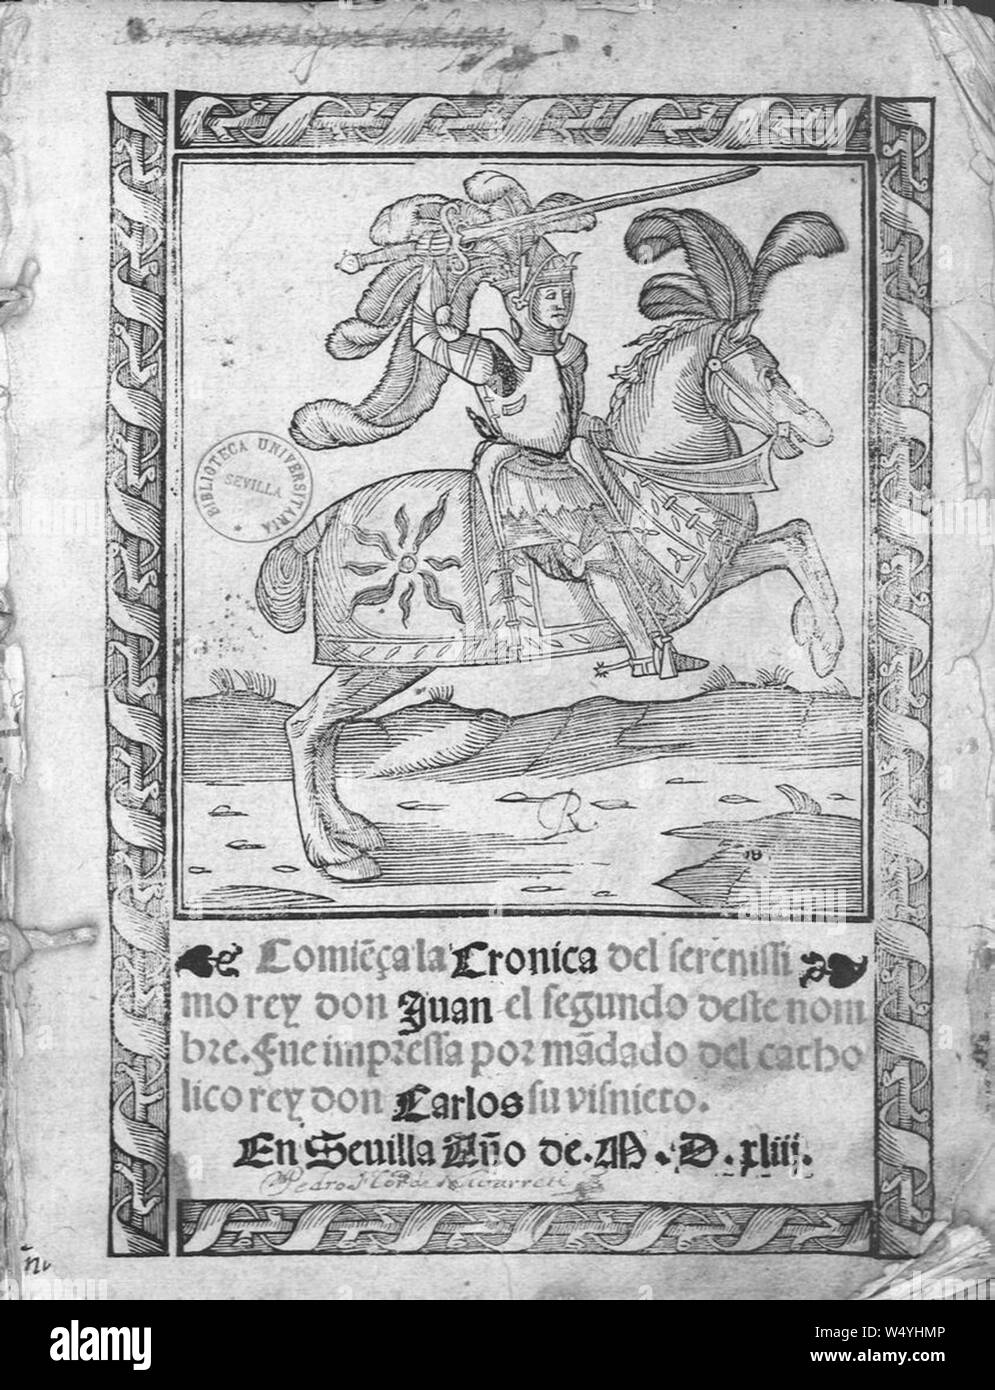 BIBLIOTECA UNIVERSITARIA
SEVILLA
Comiẽça la Cronica del sereniſſi
mo rey don Juan el segundo deste nom
bre. Fue impreſſa por mãdado del catho
lico rey don Carlos su visnieto.
En Sevilla Año de. M. D. xliij.
a
alamy
alamy
Image ID: W4YHMP
www.alamy.com